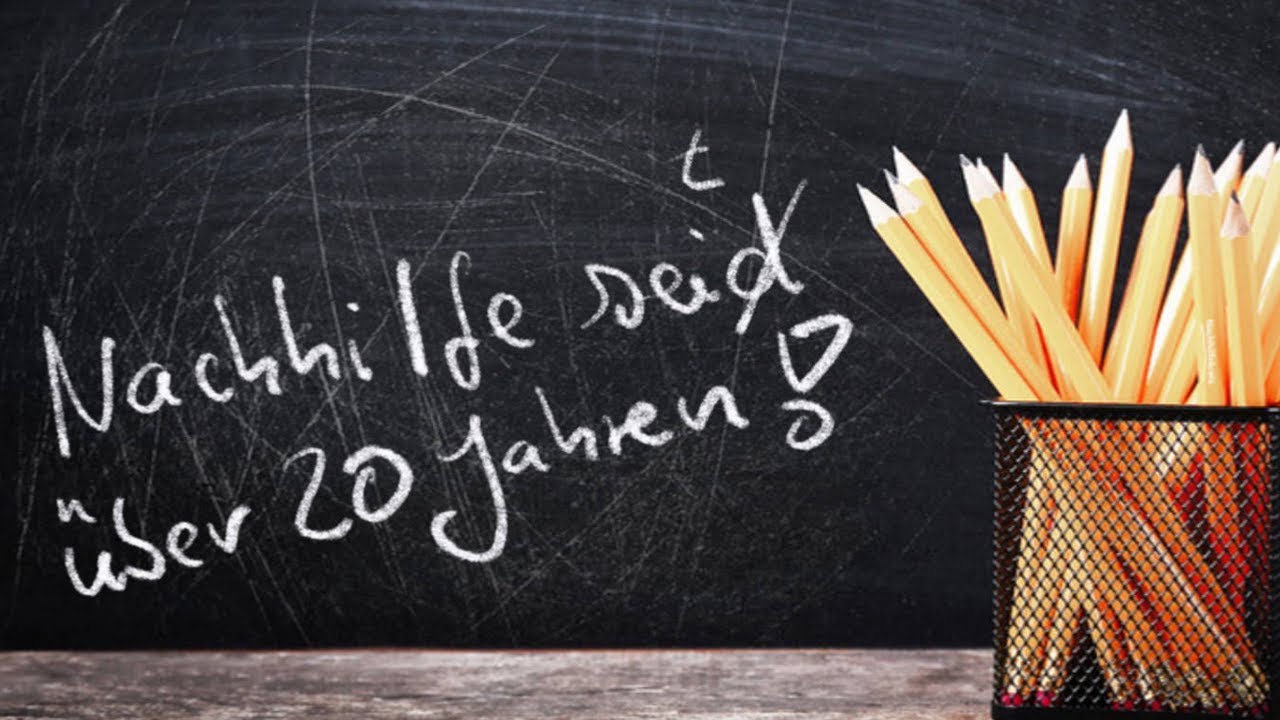 t
Nachhilfe seid
über 20 Jahren!